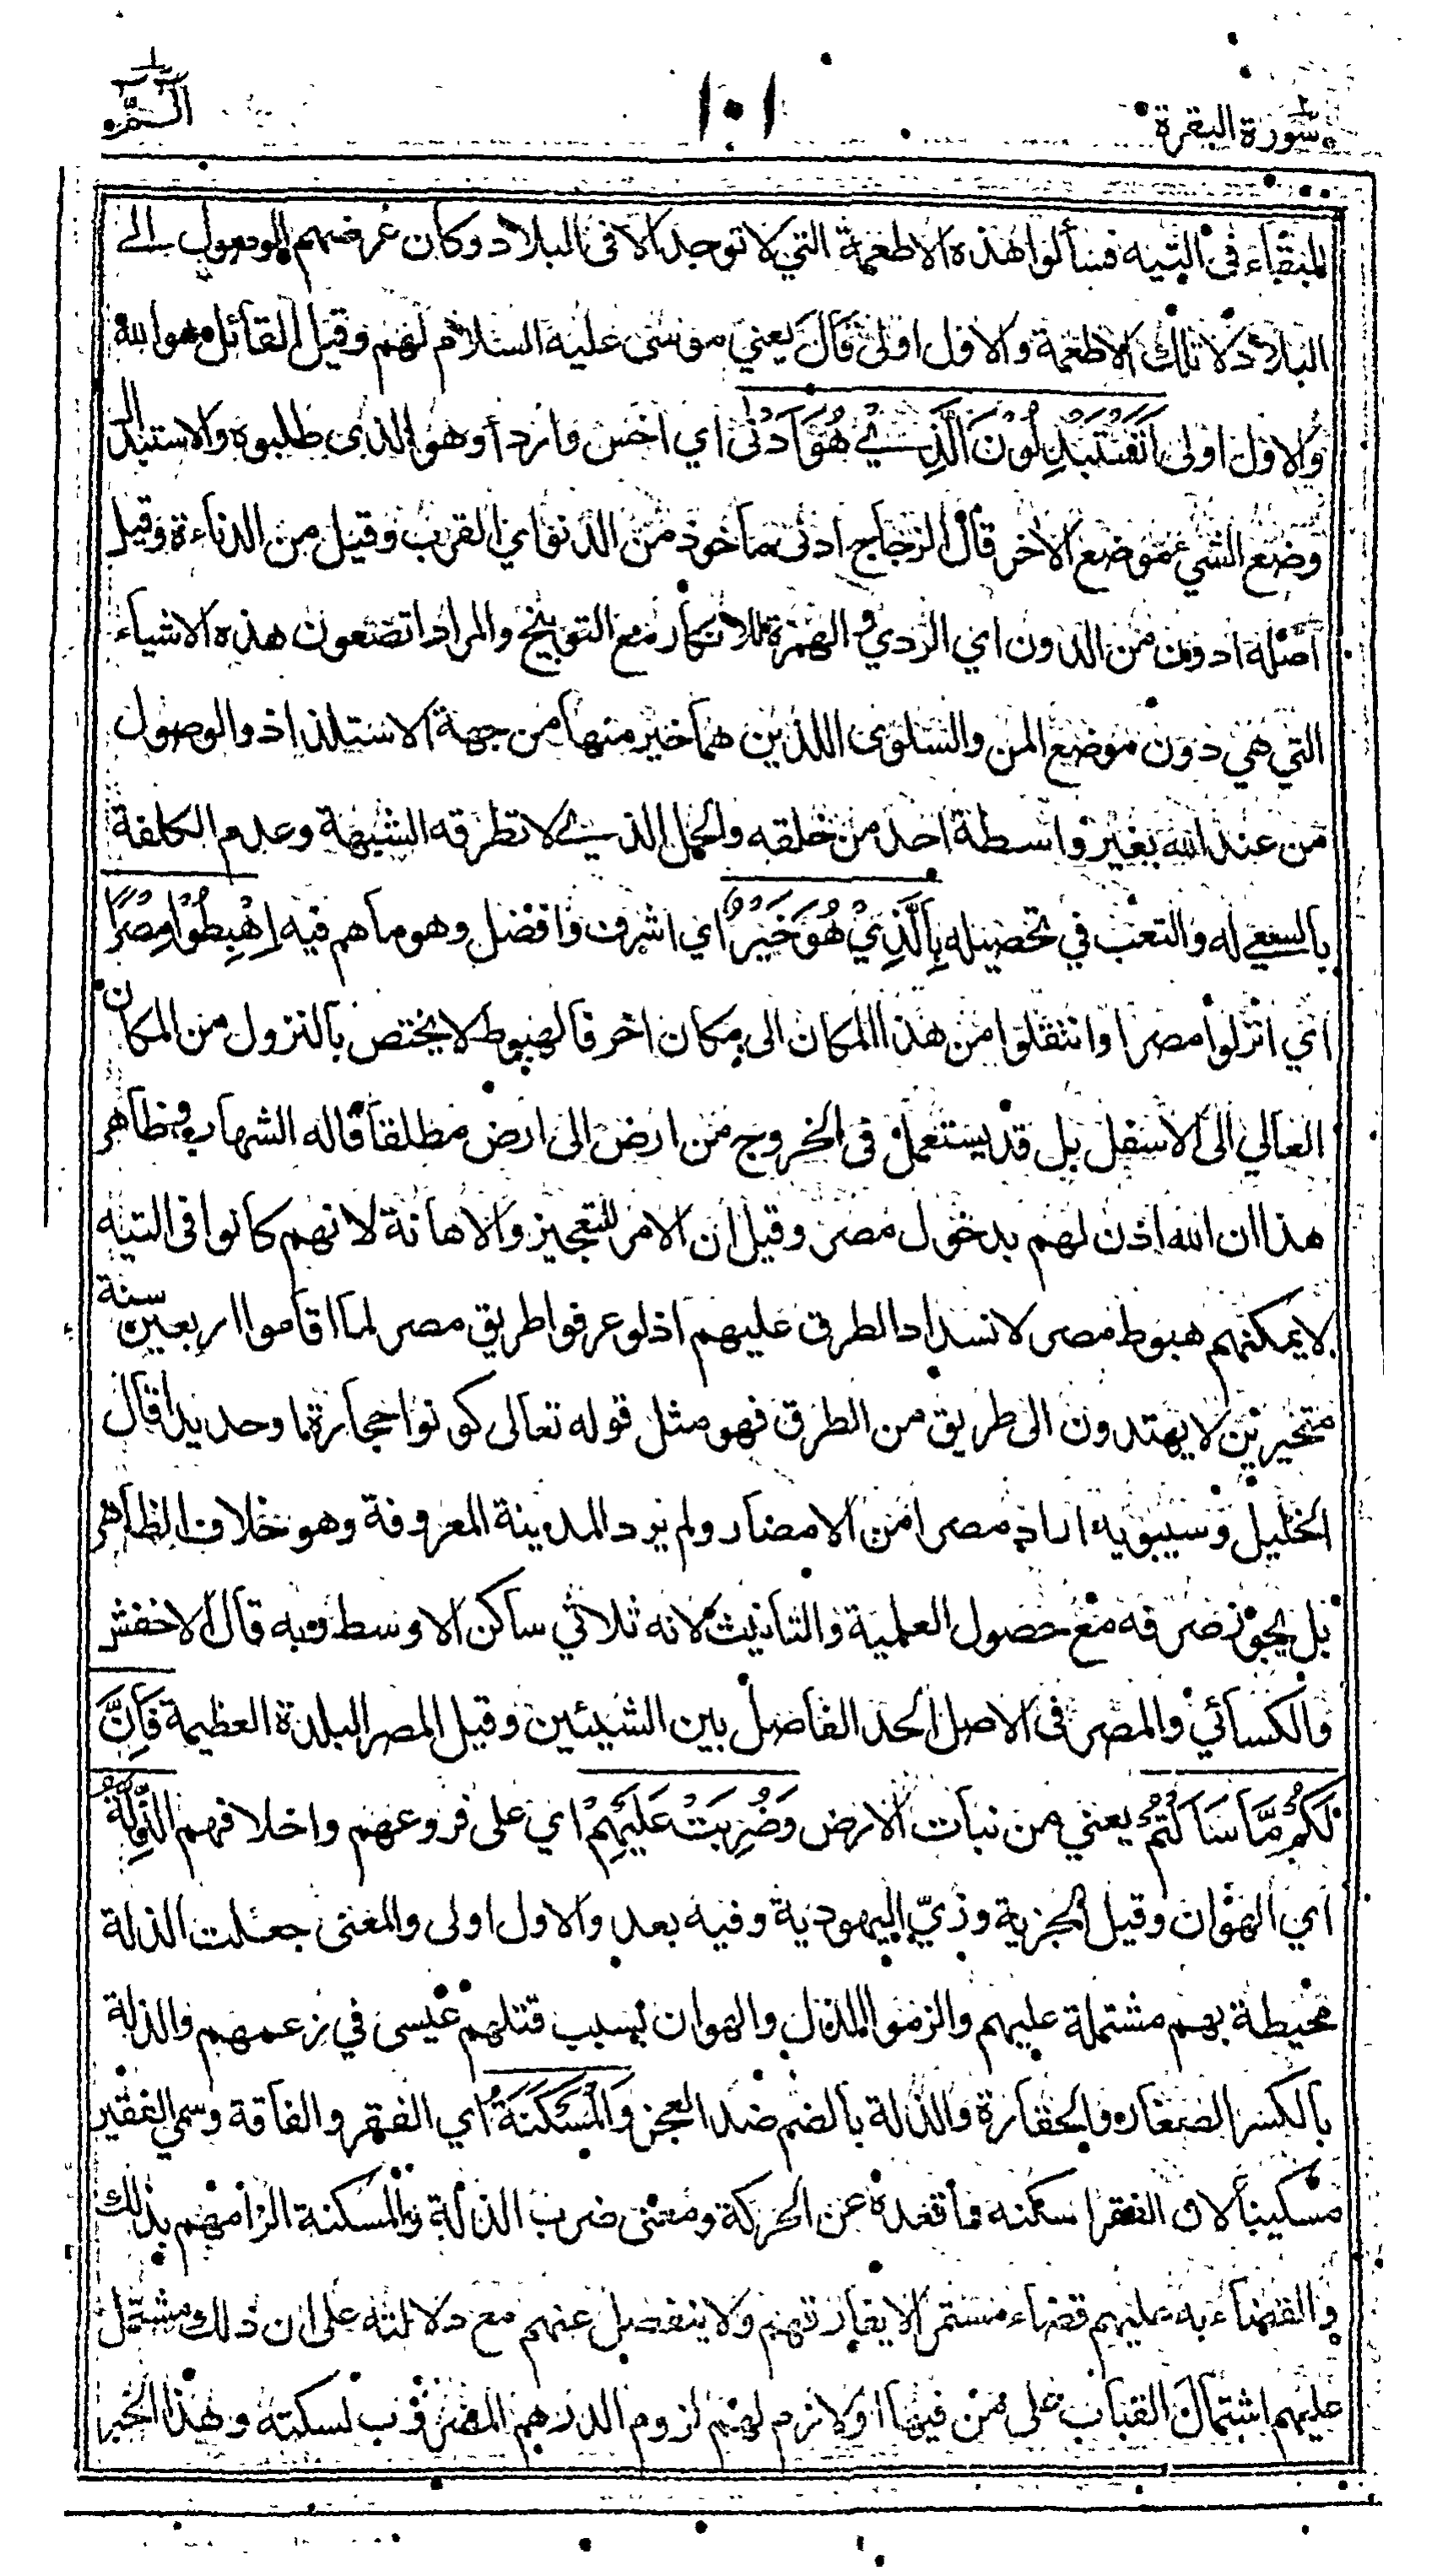 سورة البقرة ١٠١ الٓمّٓ
للبقاء فى التيه فسألوا هذه الاطعمة التي لا توجد الا فى البلاد وكان غرضهم الوصول الى
البلاد لا تلك الاطعمة والاول اولى قَالَ يعني موسى عليه السلام لهم وقيل القائل هو الله
والاول اولى اَتَسْتَبْدِلُوْنَ الَّذِيْ هُوَ اَدْنٰى اي اخس واردأ وهو الذى طلبوه والاستبدال
وضع الشيء موضع الاخر قال الزجاج ادنى مأخوذ من الدنو اي القرب وقيل من الدناءة وقيل
اصله ادون من الدون اي الردي والهمزة للانكار مع التوبيخ والمراد اتضعون هذه الاشياء
التي هي دون موضع المن والسلوى اللذين هما خير منها من جهة الاستلذاذ والوصول
من عند الله بغير واسطة احد من خلقه والحل الذي لا تطرقه الشبهة وعدم الكلفة
بالسعي له والتعب في تحصيله بِالَّذِيْ هُوَ خَيْرٌ اي اشرف وافضل وهو ما هم فيه اِهْبِطُوْا مِصْرًا
اي انزلوا مصرا وانتقلوا من هذا المكان الى مكان اخر فالهبوط لا يختص بالنزول من المكان
العالي الى الاسفل بل قد يستعمل فى الخروج من ارض الى ارض مطلقا قاله الشهاب وظاهر
هذا ان الله اذن لهم بدخول مصر وقيل ان الامر للتعجيز والاهانة لانهم كانوا فى التيه
لا يمكنهم هبوط مصر لانسداد الطرق عليهم اذ لو عرفوا طريق مصر لما اقاموا اربعين سنة
متحيرين لا يهتدون الى طريق من الطرق فهو مثل قوله تعالى كونوا حجارة او حديدا قال
الخليل وسيبويه اراد مصرا من الامصار ولم يرد المدينة المعروفة وهو خلاف الظاهر
بل يجوز صرفه مع حصول العلمية والتانيث لانه ثلاثي ساكن الاوسط وبه قال الاخفش
والكسائي والمصر فى الاصل الحد الفاصل بين الشيئين وقيل المصر البلدة العظيمة فَاِنَّ
لَكُمْ مَّا سَاَلْتُمْ يعني من نبات الارض وَضُرِبَتْ عَلَيْهِمُ اي على فروعهم واخلافهم الذِّلَّةُ
اي الهوان وقيل الجزية وزيّ اليهودية وفيه بعد والاول اولى والمعنى جعلت الذلة
محيطة بهم مشتملة عليهم والزموا الذل والهوان بسبب قتلهم عيسى في زعمهم والذلة
بالكسر الصغار والحقارة والذلة بالضم ضد العجز وَالْمَسْكَنَةُ اي الفقر والفاقة وسمي الفقير
مسكينا لان الفقر اسكنه واقعده عن الحركة ومعنى ضرب الذلة والمسكنة الزامهم بذلك
والقضاء به عليهم قضاء مستمرا لا يفارقهم ولا ينفصل عنهم مع دلالته على ان ذلك مشتمل
عليهم اشتمال القباب على من فيها او لازم لهم لزوم الدرهم المضروب لسكته وهذا الخبر